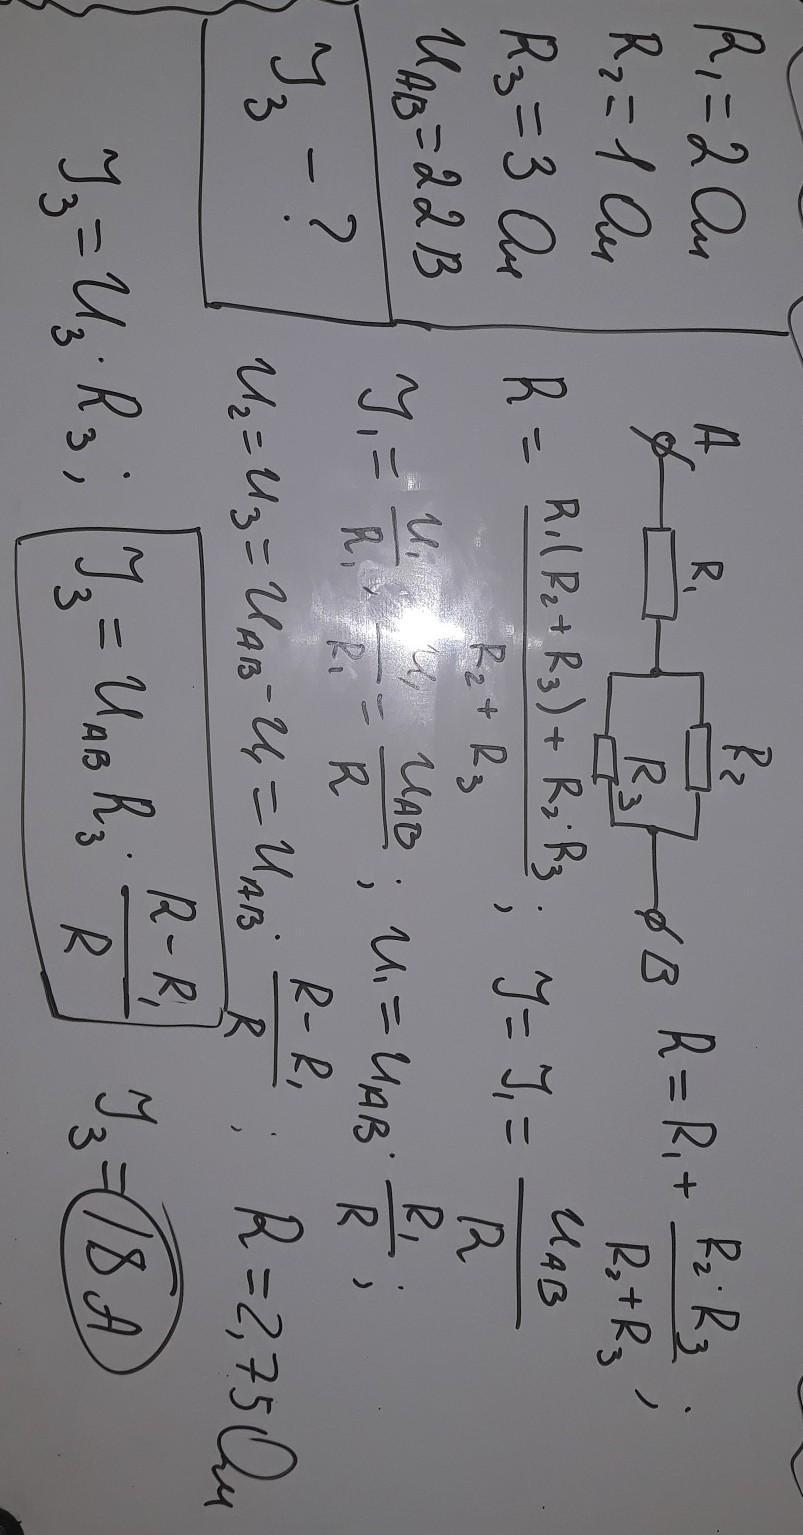 R₁ = 2 Ом
R₂ = 1 Ом
R₃ = 3 Ом
U_AB = 22 В
J₃ – ?
A R₁ R₂ R₃ B
R = R₁ + R₂·R₃ / R₂ + R₃ ;
R = R₁(R₂ + R₃) + R₂·R₃ / R₂ + R₃ ; J = J₁ = U_AB / R
J₁ = U₁ / R₁ ; U₁ / R₁ = U_AB / R ; U₁ = U_AB · R₁ / R ;
U₂ = U₃ = U_AB - U₁ = U_AB · R - R₁ / R ; R = 2,75 Ом
J₃ = U₃ · R₃ ; J₃ = U_AB R₃ · R - R₁ / R J₃ = 18 A